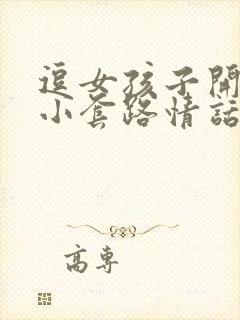 逗女孩子開
小套路情話
高專